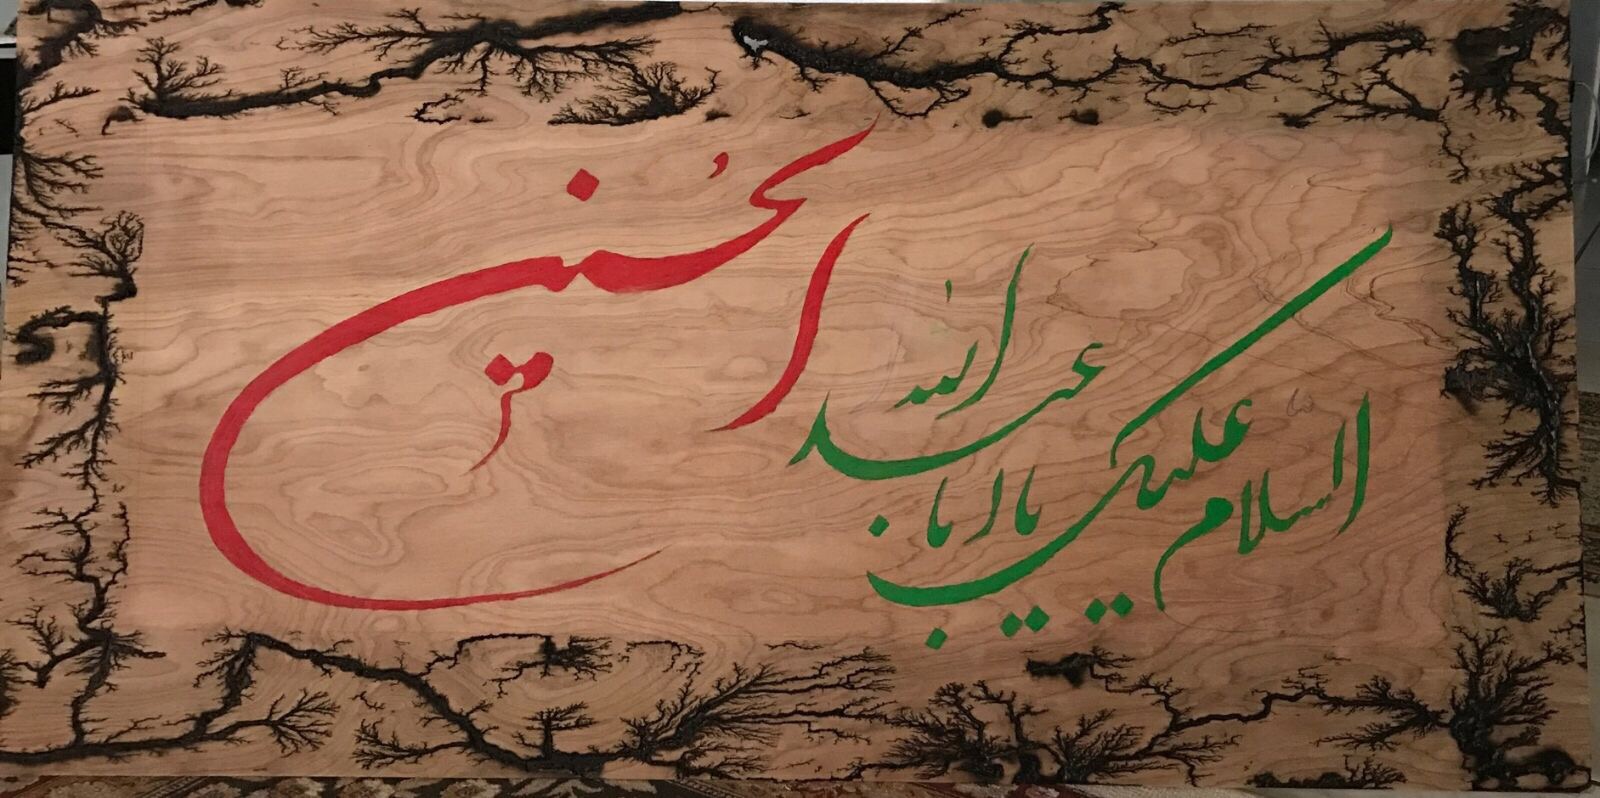 السلام علیک یا ابا عبد الله
الحُسین